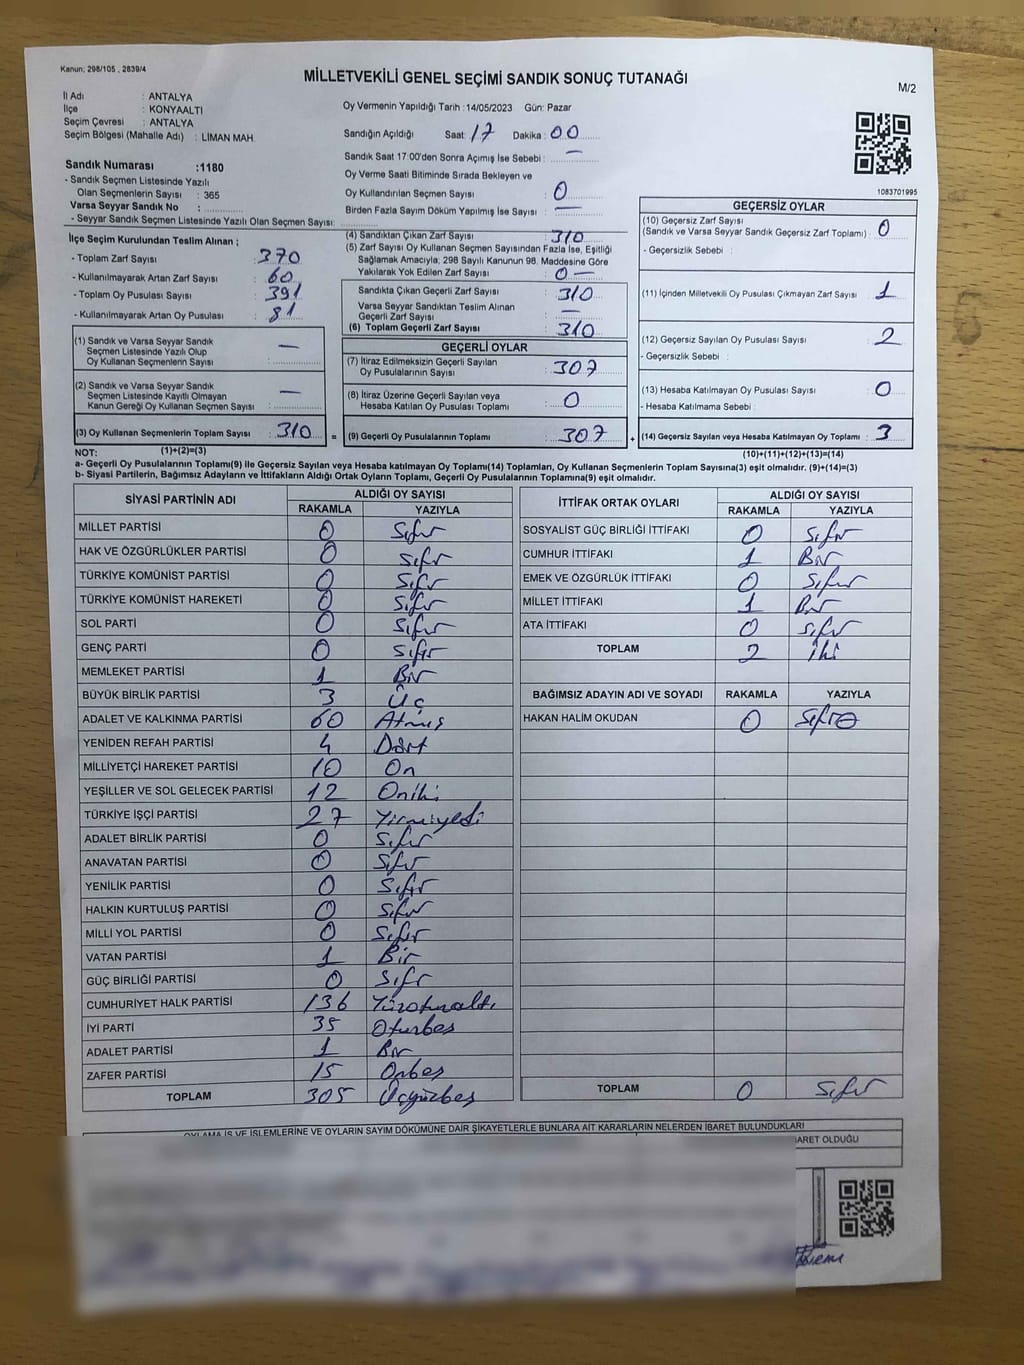 Kanun: 298/105 , 2839/4
MİLLETVEKİLİ GENEL SEÇİMİ SANDIK SONUÇ TUTANAĞI
M/2
İl Adı : ANTALYA
İlçe : KONYAALTI
Seçim Çevresi : ANTALYA
Seçim Bölgesi (Mahalle Adı) : LİMAN MAH.
Sandık Numarası :1180
- Sandık Seçmen Listesinde Yazılı
Olan Seçmenlerin Sayısı : 365
Varsa Seyyar Sandık No :
- Seyyar Sandık Seçmen Listesinde Yazılı Olan Seçmen Sayısı:
Oy Vermenin Yapıldığı Tarih :14/05/2023 Gün: Pazar
Sandığın Açıldığı Saat: 17 Dakika : 00
Sandık Saat 17:00'den Sonra Açımış İse Sebebi : —
Oy Verme Saati Bitiminde Sırada Bekleyen ve
Oy Kullandırılan Seçmen Sayısı : 0
Birden Fazla Sayım Döküm Yapılmış İse Sayısı : —
1083701995
İlçe Seçim Kurulundan Teslim Alınan ;
- Toplam Zarf Sayısı : 370
- Kullanılmayarak Artan Zarf Sayısı : 60
- Toplam Oy Pusulası Sayısı : 391
- Kullanılmayarak Artan Oy Pusulası : 81
(1) Sandık ve Varsa Seyyar Sandık
Seçmen Listesinde Yazılı Olup
Oy Kullanan Seçmenlerin Sayısı : —
(2) Sandık ve Varsa Seyyar Sandık
Seçmen Listesinde Kayıtlı Olmayan
Kanun Gereği Oy Kullanan Seçmen Sayısı : —
(3) Oy Kullanan Seçmenlerin Toplam Sayısı : 310 =
(4) Sandıktan Çıkan Zarf Sayısı : 310
(5) Zarf Sayısı Oy Kullanan Seçmen Sayısından Fazla İse, Eşitliği
Sağlamak Amacıyla; 298 Sayılı Kanunun 98. Maddesine Göre
Yakılarak Yok Edilen Zarf Sayısı : 0 —
Sandıkta Çıkan Geçerli Zarf Sayısı : 310
Varsa Seyyar Sandıktan Teslim Alınan
Geçerli Zarf Sayısı : —
(6) Toplam Geçerli Zarf Sayısı : 310
GEÇERLİ OYLAR
(7) İtiraz Edilmeksizin Geçerli Sayılan
Oy Pusulalarının Sayısı : 307
(8) İtiraz Üzerine Geçerli Sayılan veya
Hesaba Katılan Oy Pusulası Toplamı : 0
(9) Geçerli Oy Pusulalarının Toplamı : 307 +
GEÇERSİZ OYLAR
(10) Geçersiz Zarf Sayısı
(Sandık ve Varsa Seyyar Sandık Geçersiz Zarf Toplamı) : 0
- Geçersizlik Sebebi :
(11) İçinden Milletvekili Oy Pusulası Çıkmayan Zarf Sayısı : 1
(12) Geçersiz Sayılan Oy Pusulası Sayısı : 2
- Geçersizlik Sebebi :
(13) Hesaba Katılmayan Oy Pusulası Sayısı : 0
- Hesaba Katılmama Sebebi :
(14) Geçersiz Sayılan veya Hesaba Katılmayan Oy Toplamı : 3
NOT: (1)+(2)=(3) (10)+(11)+(12)+(13)=(14)
a- Geçerli Oy Pusulalarının Toplamı(9) ile Geçersiz Sayılan veya Hesaba katılmayan Oy Toplamı(14) Toplamları, Oy Kullanan Seçmenlerin Toplam Sayısına(3) eşit olmalıdır. (9)+(14)=(3)
b- Siyasi Partilerin, Bağımsız Adayların ve İttifakların Aldığı Ortak Oyların Toplamı, Geçerli Oy Pusulalarının Toplamına(9) eşit olmalıdır.
SİYASİ PARTİNİN ADI ALDIĞI OY SAYISI
RAKAMLA YAZIYLA
MİLLET PARTİSİ 0 Sıfır
HAK VE ÖZGÜRLÜKLER PARTİSİ 0 Sıfır
TÜRKİYE KOMÜNİST PARTİSİ 0 Sıfır
TÜRKİYE KOMÜNİST HAREKETİ 0 Sıfır
SOL PARTİ 0 Sıfır
GENÇ PARTİ 0 Sıfır
MEMLEKET PARTİSİ 1 Bir
BÜYÜK BİRLİK PARTİSİ 3 Üç
ADALET VE KALKINMA PARTİSİ 60 Atmış
YENİDEN REFAH PARTİSİ 4 Dört
MİLLİYETÇİ HAREKET PARTİSİ 10 On
YEŞİLLER VE SOL GELECEK PARTİSİ 12 Oniki
TÜRKİYE İŞÇİ PARTİSİ 27 Yirmiyedi
ADALET BİRLİK PARTİSİ 0 Sıfır
ANAVATAN PARTİSİ 0 Sıfır
YENİLİK PARTİSİ 0 Sıfır
HALKIN KURTULUŞ PARTİSİ 0 Sıfır
MİLLİ YOL PARTİSİ 0 Sıfır
VATAN PARTİSİ 1 Bir
GÜÇ BİRLİĞİ PARTİSİ 0 Sıfır
CUMHURİYET HALK PARTİSİ 136 Yüzoturaltı
İYİ PARTİ 35 Oturbeş
ADALET PARTİSİ 1 Bir
ZAFER PARTİSİ 15 Onbeş
TOPLAM 305 Üçyüzbeş
İTTİFAK ORTAK OYLARI ALDIĞI OY SAYISI
RAKAMLA YAZIYLA
SOSYALİST GÜÇ BİRLİĞİ İTTİFAKI 0 Sıfır
CUMHUR İTTİFAKI 1 Bir
EMEK VE ÖZGÜRLÜK İTTİFAKI 0 Sıfır
MİLLET İTTİFAKI 1 Bir
ATA İTTİFAKI 0 Sıfır
TOPLAM 2 İki
BAĞIMSIZ ADAYIN ADI VE SOYADI RAKAMLA YAZIYLA
HAKAN HALİM OKUDAN 0 Sıfır
TOPLAM 0 Sıfır
OYLAMA İŞ VE İŞLEMLERİNE VE OYLARIN SAYIM DÖKÜMÜNE DAİR ŞİKAYETLERLE BUNLARA AİT KARARLARIN NELERDEN İBARET BULUNDUKLARI
BARET OLDUĞU